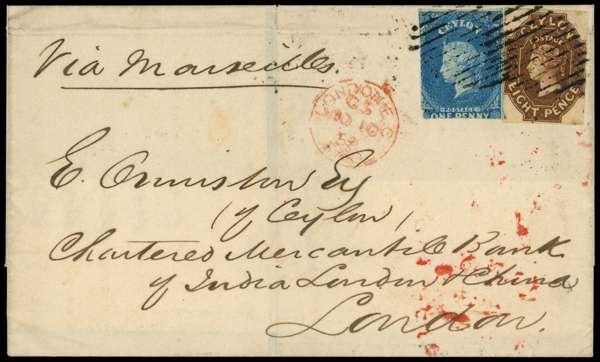 CEYLON
ONE PENNY
CEYLON
POSTAGE
EIGHT PENCE
Via Marseilles.
LONDON E.C
59
E. Ormiston Esq
(of Ceylon)
Chartered Mercantile Bank
of India London & China
London.